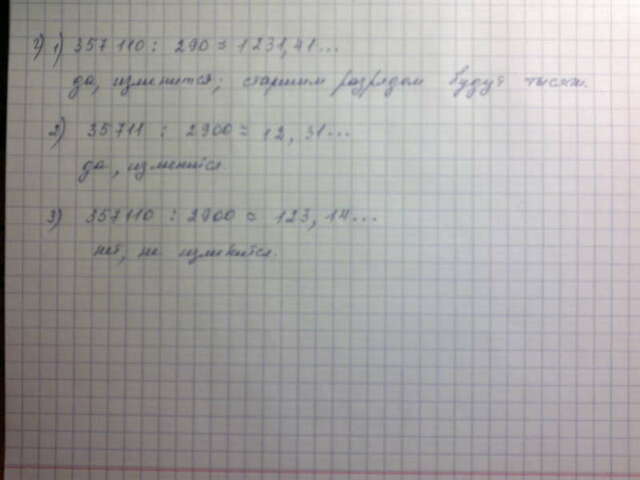 2) 1) 357 110 : 290 ≈ 1231,41...
да, изменится; старшим разрядом будут тысяч.
2) 35711 : 2900 ≈ 12,31...
да, изменится.
3) 357110 : 2900 ≈ 123,14...
нет, не изменится.